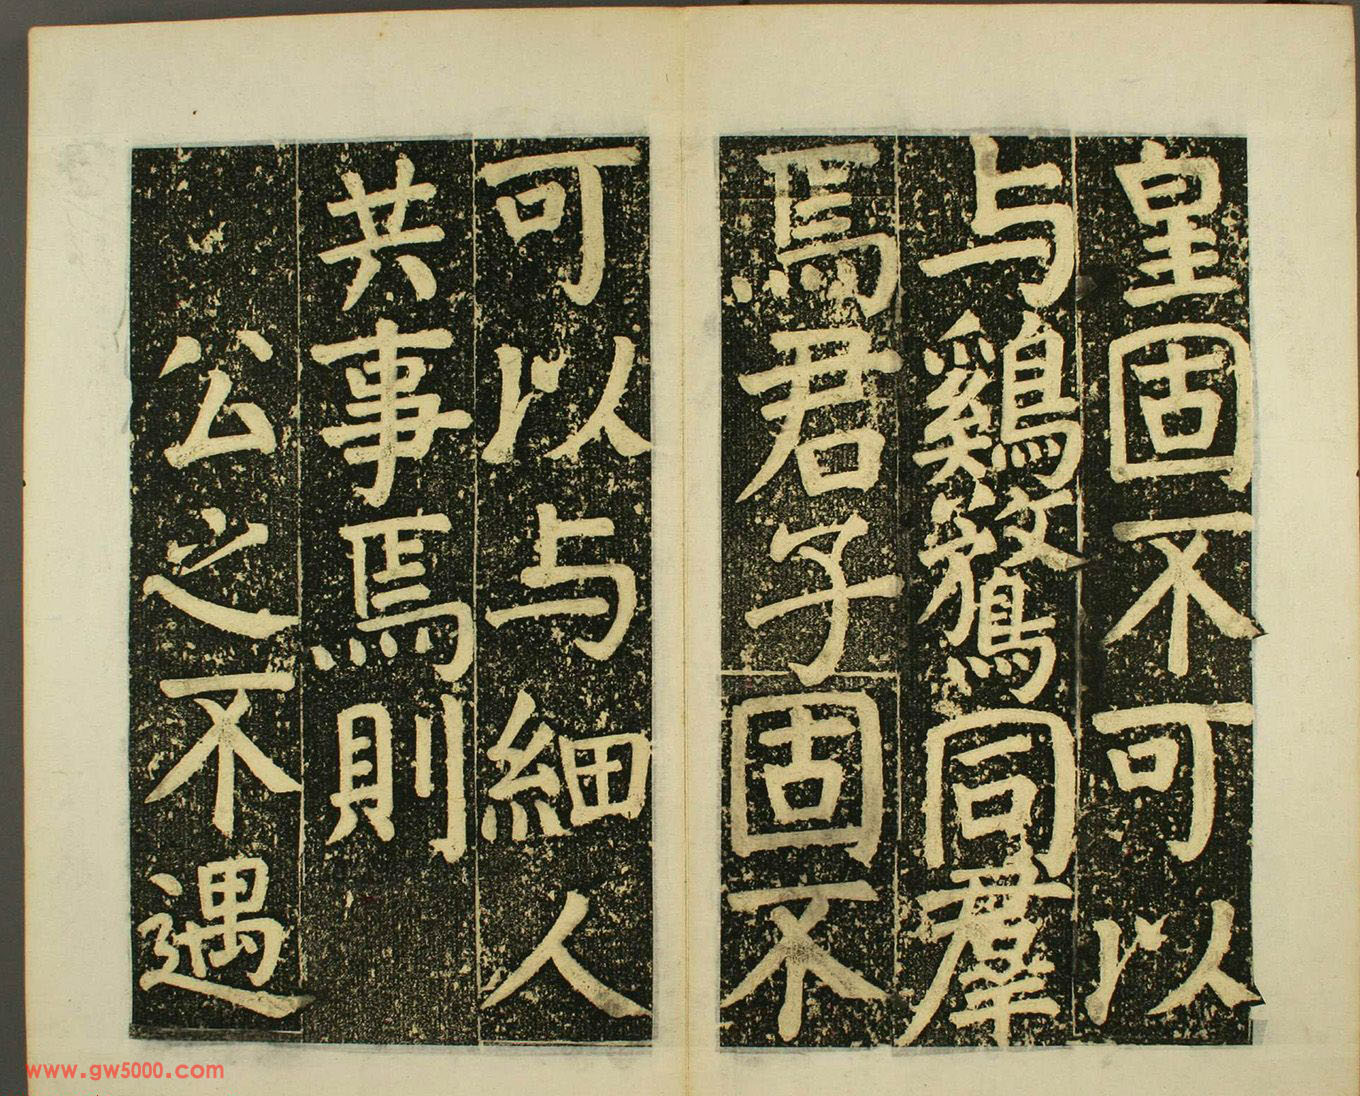 皇固不可以
与鷄鶩同羣
焉君子固不
可以与細人
共事焉則
公之不遇
www.gw5000.com